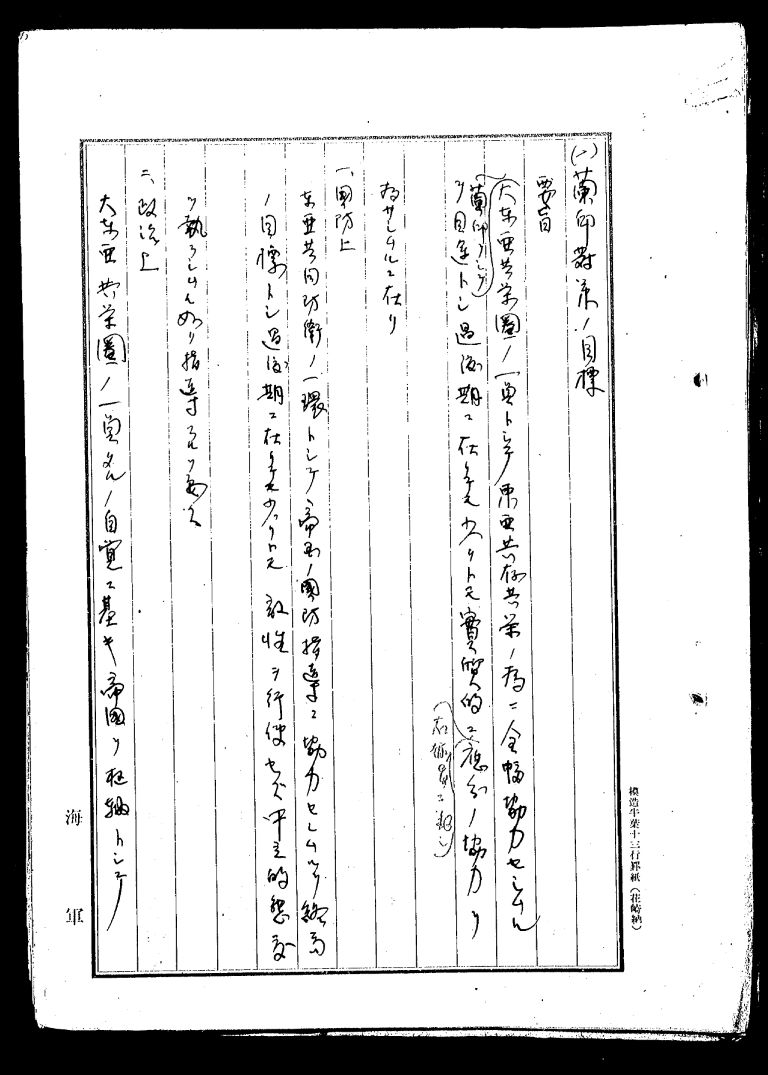 (一)蘭印對策ノ目標
要旨
蘭印ヲシテ
大東亜共栄圏ノ一員トシテ東亜共存共栄ノ為ニ全幅協力セシムル
ヲ目途トシ過渡期ニ在リテモ少クトモ實質的ニ應分ノ協力ヲ
為サシムルニ在リ
一、国防上
東亜共同防衛ノ一環トシテ帝国ノ國防指導ニ協力セシムルヲ終局
ノ目標トシ過渡期ニ在リテモ少クトモ敵性ヲ行使セズ中立的態度
ヲ執ラシムル如ク指導スルヲ要ス
二、政治上
大東亜共栄圏ノ一員タルノ自覚ニ基キ帝國ヲ枢軸トシテ
海軍
模造半葉十三行罫紙